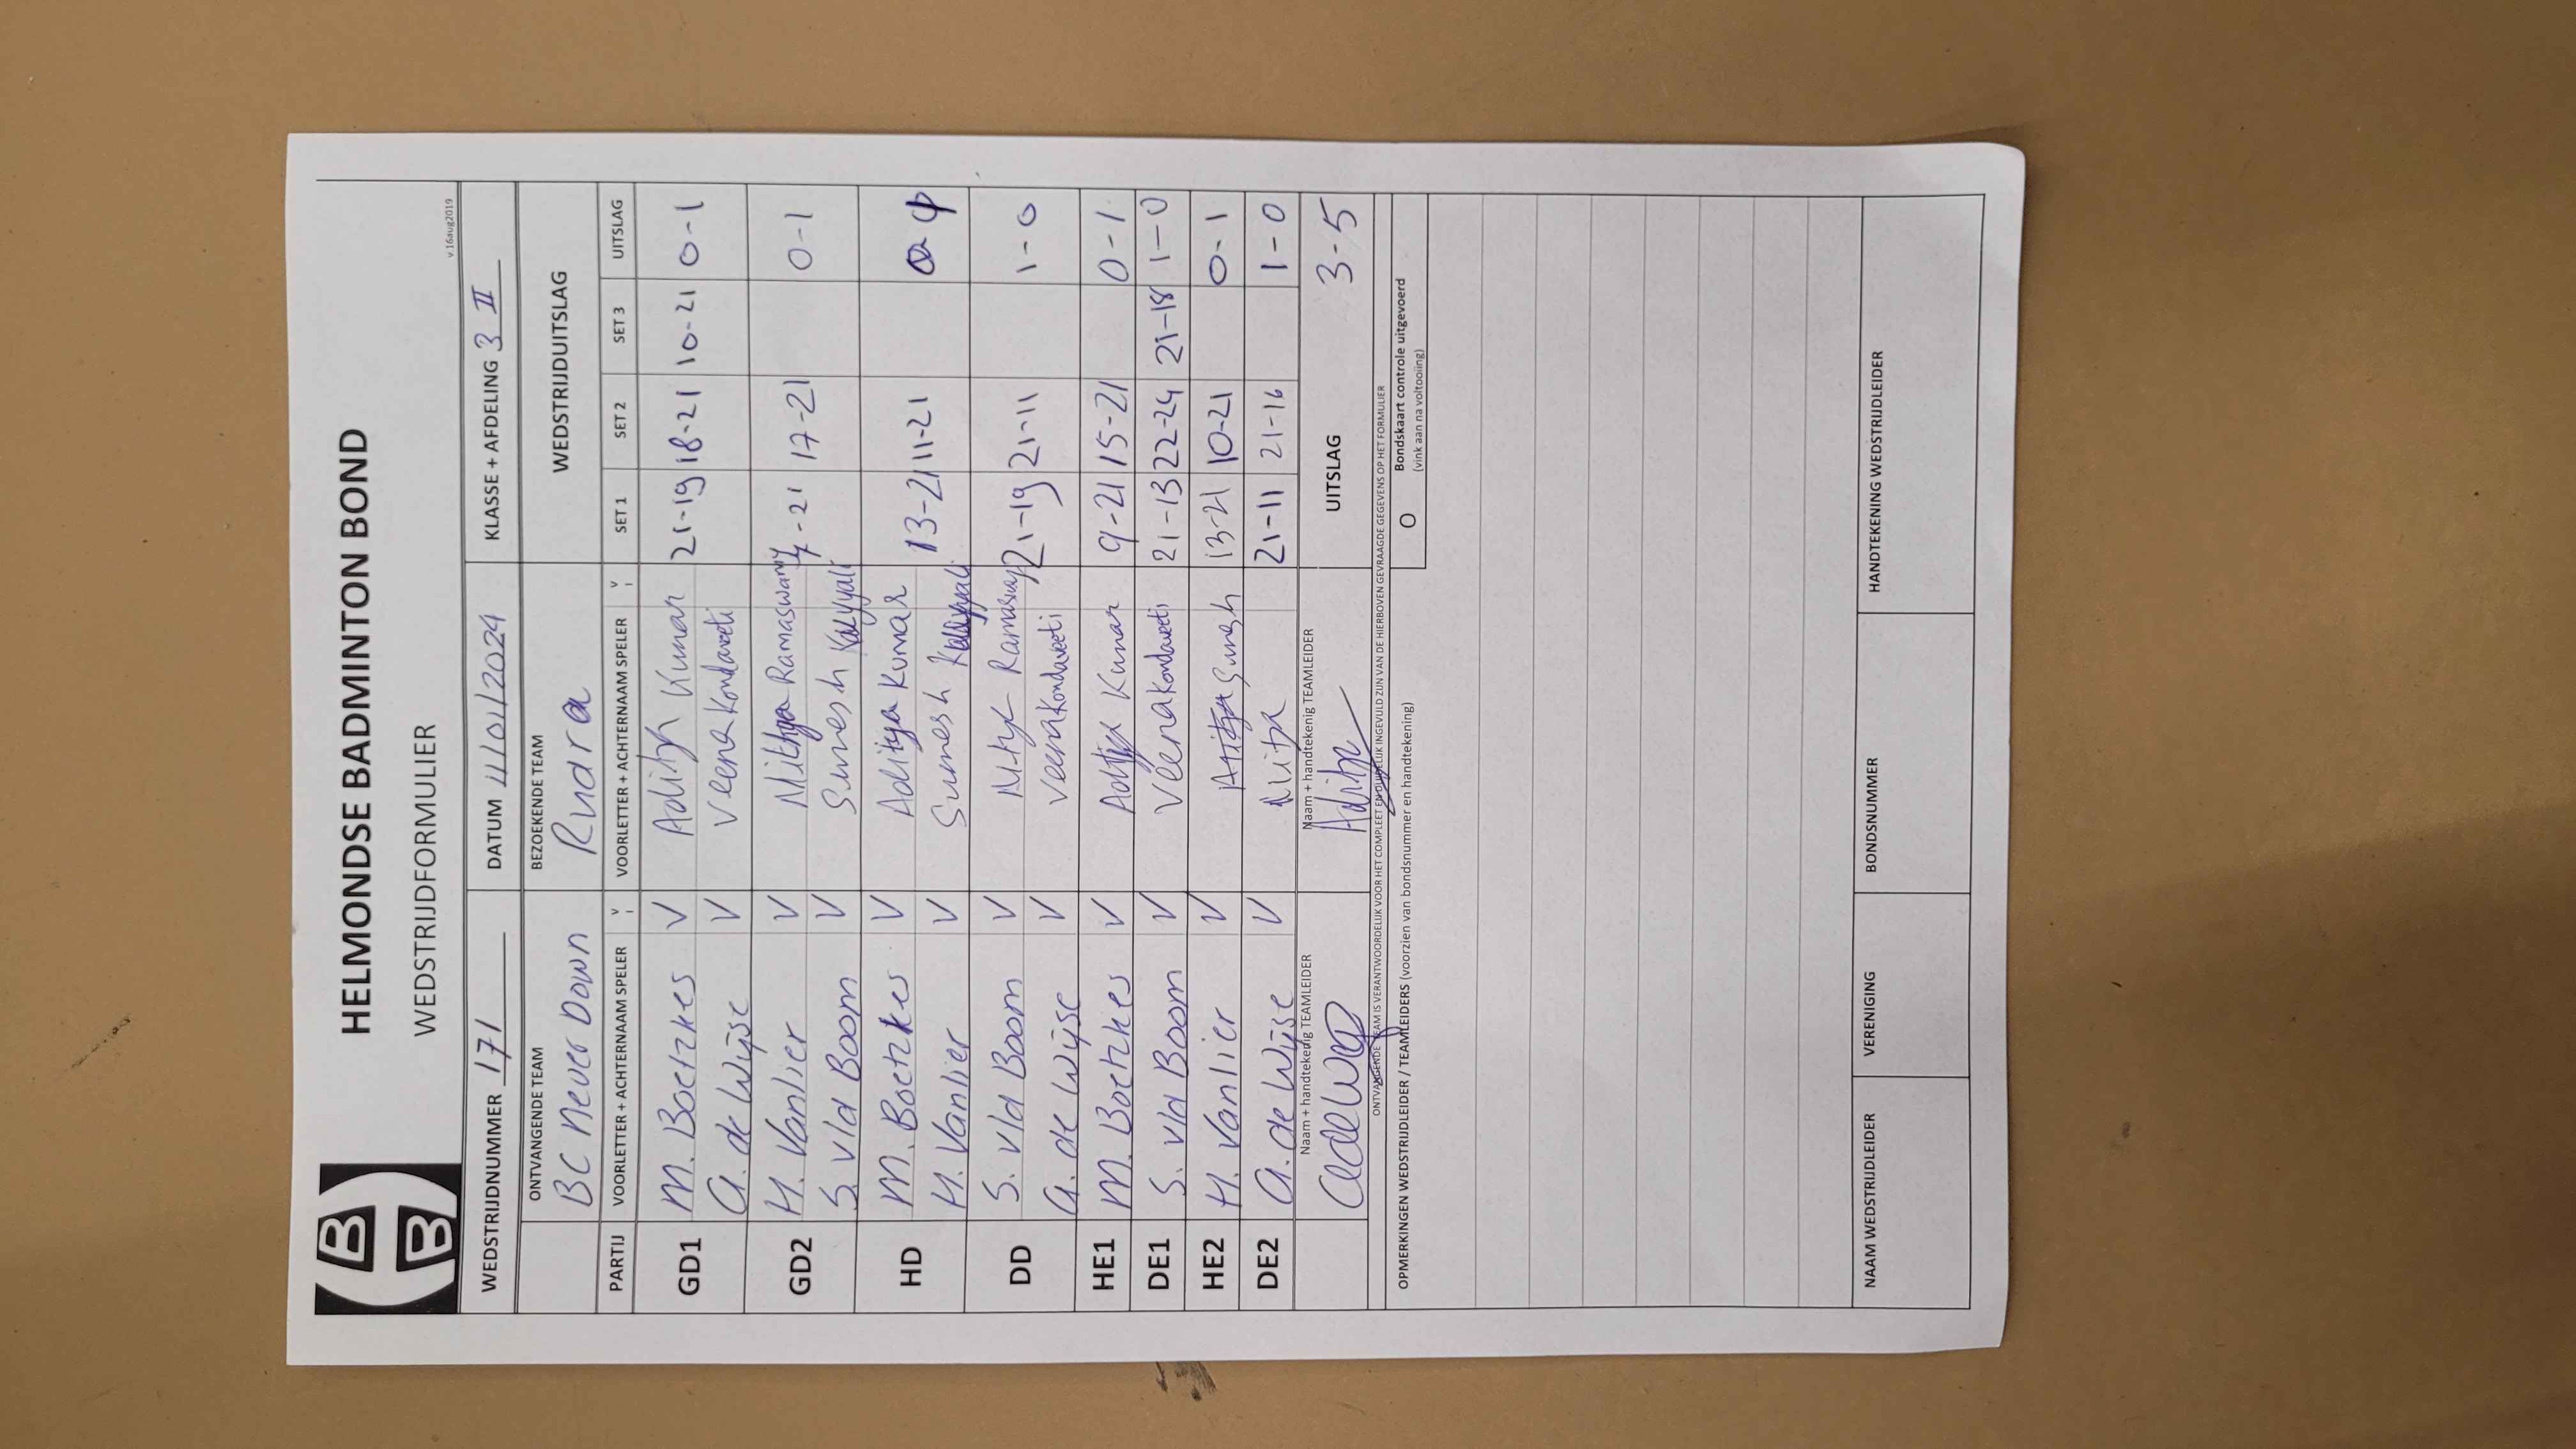 HELMONDSE BADMINTON BOND
WEDSTRIJDFORMULIER
v.16aug2019
WEDSTRIJDNUMMER 171 DATUM 11/01/2024 KLASSE + AFDELING 3 II
ONTVANGENDE TEAM BEZOEKENDE TEAM WEDSTRIJDUITSLAG
BC Never Down Rudra
PARTIJ VOORLETTER + ACHTERNAAM SPELER V VOORLETTER + ACHTERNAAM SPELER V SET 1 SET 2 SET 3 UITSLAG
GD1 M. Boetzkes V Aditya Kumar 21-19 18-21 10-21 0-1
A. de Wijse V Veena Kondaveeti
GD2 H. Vanlier V Nithya Ramaswamy 21 17-21 0-1
S. v/d Boom V Sumesh
HD M. Boetzkes V Aditya Kumar 13-21 11-21
H. Vanlier V Sumesh
DD S. v/d Boom V Nitya Ramaswamy 21-19 21-11 1-0
A. de Wijse V Veena Kondaveeti
HE1 M. Boetzkes V Aditya Kumar 9-21 15-21 0-1
DE1 S. v/d Boom V Veena Kondaveeti 21-13 22-24 21-18 1-0
HE2 H. Vanlier V Sumesh 13-21 10-21 0-1
DE2 A. de Wijse V Nitya 21-11 21-16 1-0
Naam + handtekenig TEAMLEIDER Naam + handtekenig TEAMLEIDER UITSLAG 3-5
Aditya
ONTVANGENDE TEAM IS VERANTWOORDELIJK VOOR HET COMPLEET EN DUIDELIJK INGEVULD ZIJN VAN DE HIERBOVEN GEVRAAGDE GEGEVENS OP HET FORMULIER
OPMERKINGEN WEDSTRIJDLEIDER / TEAMLEIDERS (voorzien van bondsnummer en handtekening) O Bondskaart controle uitgevoerd
(vink aan na voltooiing)
NAAM WEDSTRIJDLEIDER VERENIGING BONDSNUMMER HANDTEKENING WEDSTRIJDLEIDER